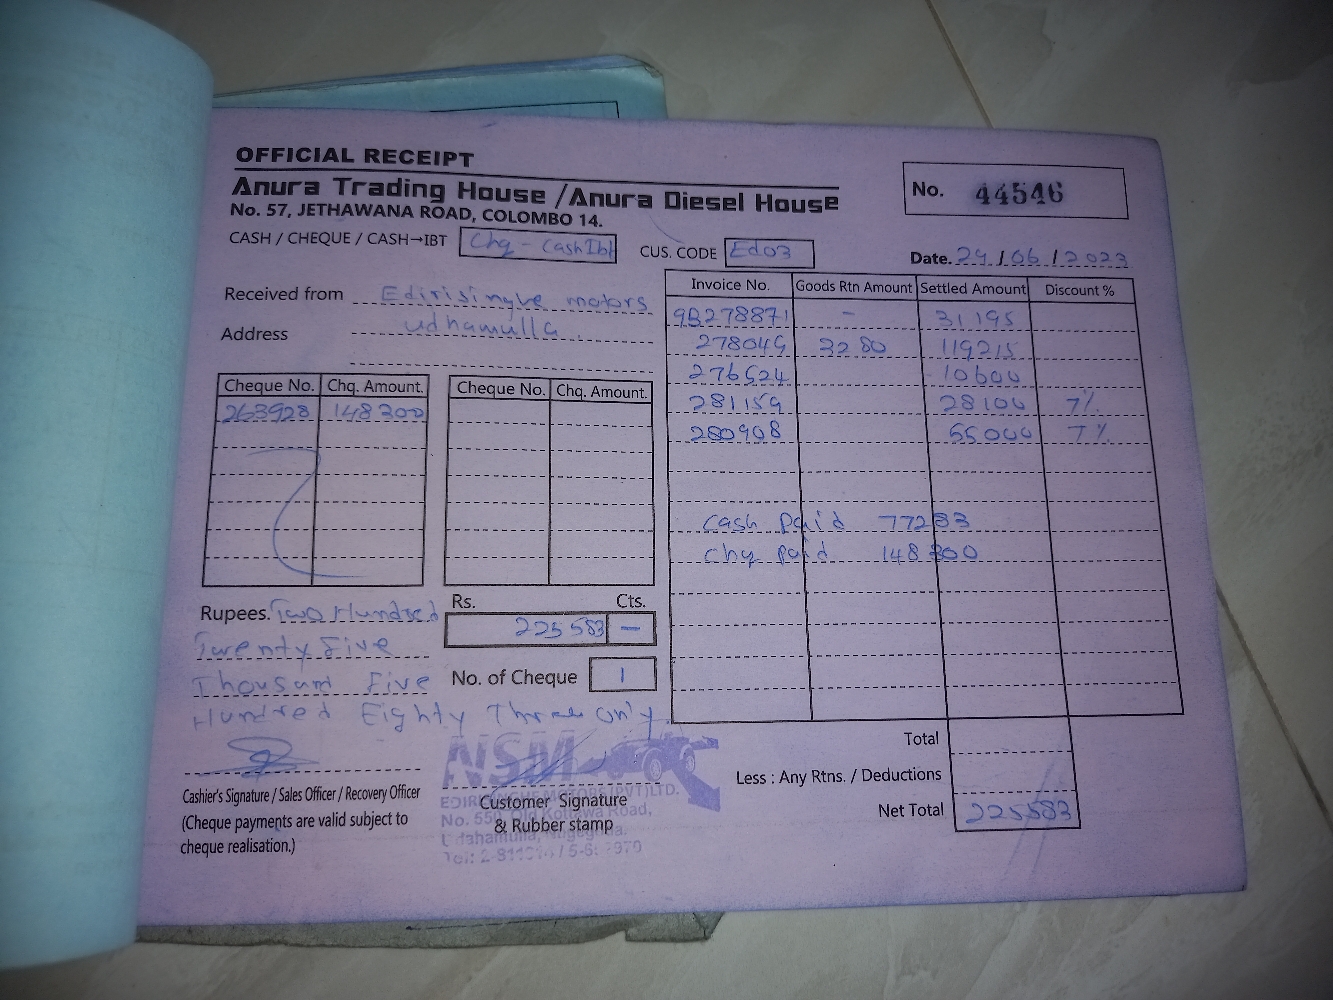 OFFICIAL RECEIPT
Anura Trading House / Anura Diesel House
No. 57, JETHAWANA ROAD, COLOMBO 14.
No. 44546
CASH / CHEQUE / CASH→IBT Chq - CashIbt
CUS. CODE Ed03
Date. 24 / 06 / 2023
Received from Edirisinghe motors
Address Udhamulla
Cheque No. Chq. Amount. Cheque No. Chq. Amount.
263928 148300
Invoice No. Goods Rtn Amount Settled Amount Discount %
9B278871 - 31195
278049 3280 119215
276524 10600
281159 28100 7%
280908 55000 7%
Cash Paid 77283
Chq Paid 148300
Rupees. Two Hundred
Twenty Five
Thousand Five
Hundred Eighty Three Only.
Rs. Cts.
225583 —
No. of Cheque 1
Total
Less : Any Rtns. / Deductions
Net Total 225583
Cashier's Signature / Sales Officer / Recovery Officer
(Cheque payments are valid subject to
cheque realisation.)
Customer Signature
& Rubber stamp
NSM
(PVT) LTD.
No. 550, Road,